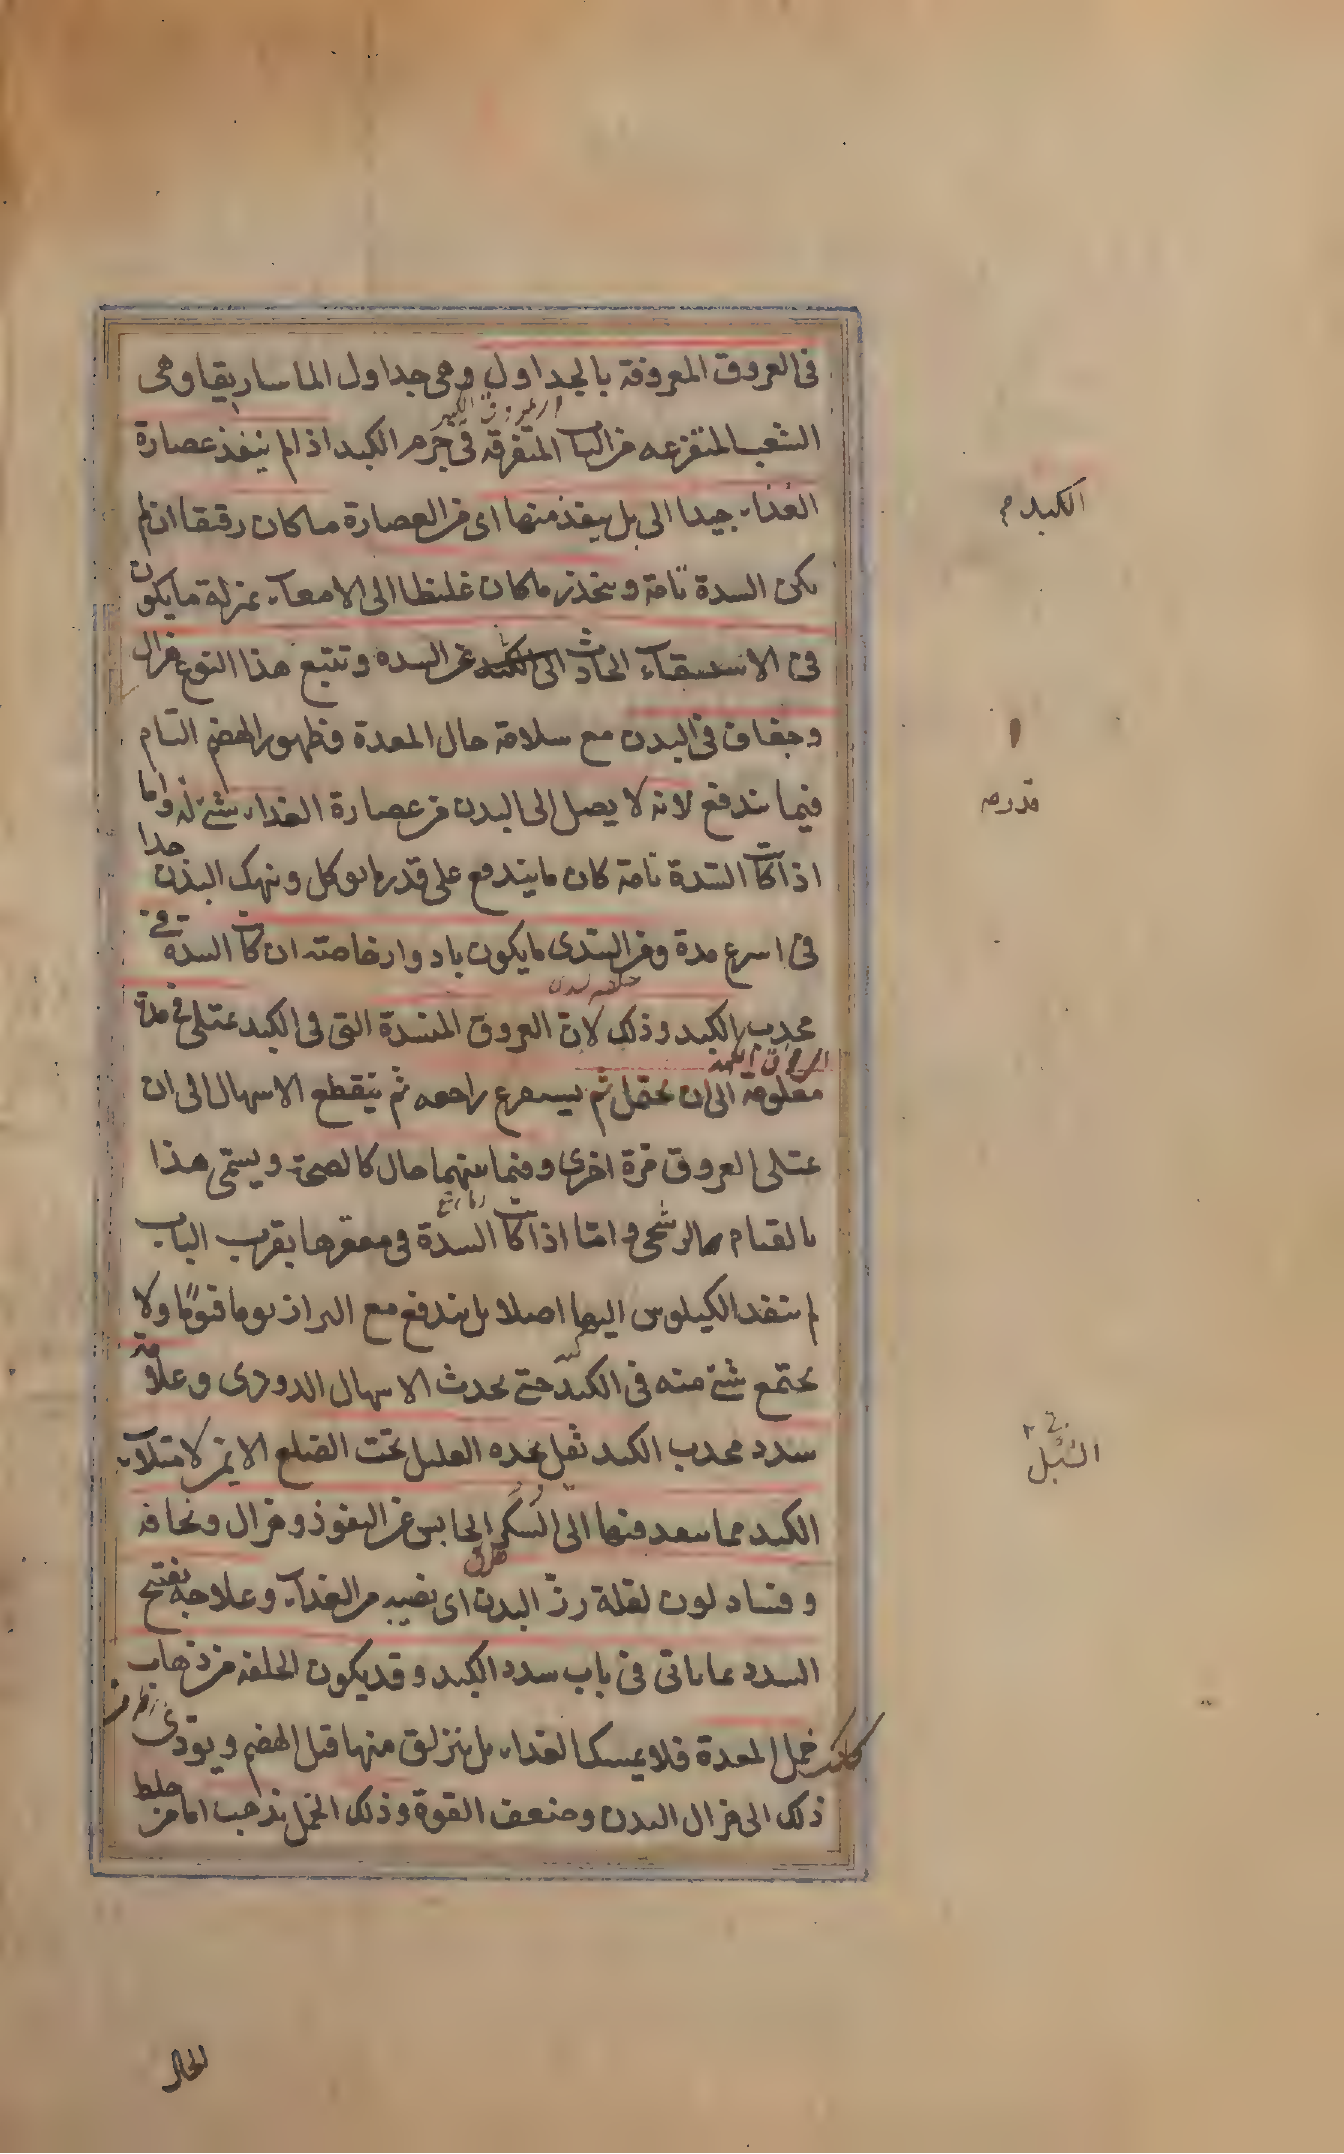 فى العروق المعروفة بالجداول وهى جداول الماساريقا وهى
الشعب المتفرعه من الباب المتفرقه فى جرم الكبد اذا لم ينفذ عصارة
الغذاء جيدا الى بل ينفذ منها اى من العصارة ما كان رقيقا ان لم
يكن السدة تامة وينحدر ما كان غليظا الى الامعاء بمنزلة ما يكون
فى الاستسقاء الحادث عن السده وتتبع هذا النوع هزال
وجفاف فى البدن مع سلامة حال المعدة وظهور الهضم التام
فيما يندفع لانه لا يصل الى البدن من عصارة الغذاء شئ له واما
اذا كانت السدة تامة كان ما يندفع على قدر ما يوكل وينهك البدن جدا
فى اسرع مدة ومن السددى ما يكون بادوار خاصته ان كانت السدة فى
محدب الكبد وذلك لان العروق المنسدة التى فى الكبد تمتلى فى مدة
معلومة الى ان ثم يستفرغ راجعه ثم ينقطع الاسهال الى ان
تمتلى العروق مرة اخرى وفيما بينهما حال كالصحة ويسمى هذا
بالقيام واما اذا كانت السدة فى مقعرها بقرب الباب
لم ينفذ الكيلوس اليها اصلا بل يندفع مع البراز يوما فيوما ولا
يجتمع شئ منه فى الكبد حتى يحدث الاسهال الدورى وعلامة
سدد محدب الكبد ثقل يجده العليل تحت الضلع الايمن لامتلاء
الكبد مما ينفذ منها الى السكر الحابس عن النفوذ وهزال ونحافه
وفساد لون لقلة رزق البدن اى نصيبه من الغذاء وعلاجه تفتيح
السدد بما ياتى فى باب سدد الكبد وقد يكون الخلفه من ذهاب
خمل المعدة فلا يمسك الغذاء بل ينزلق منها قبل الهضم ويؤدى
ذلك الى هزال البدن وضعف القوة وذلك الخمل يذهب اما من خلط
الكبد م